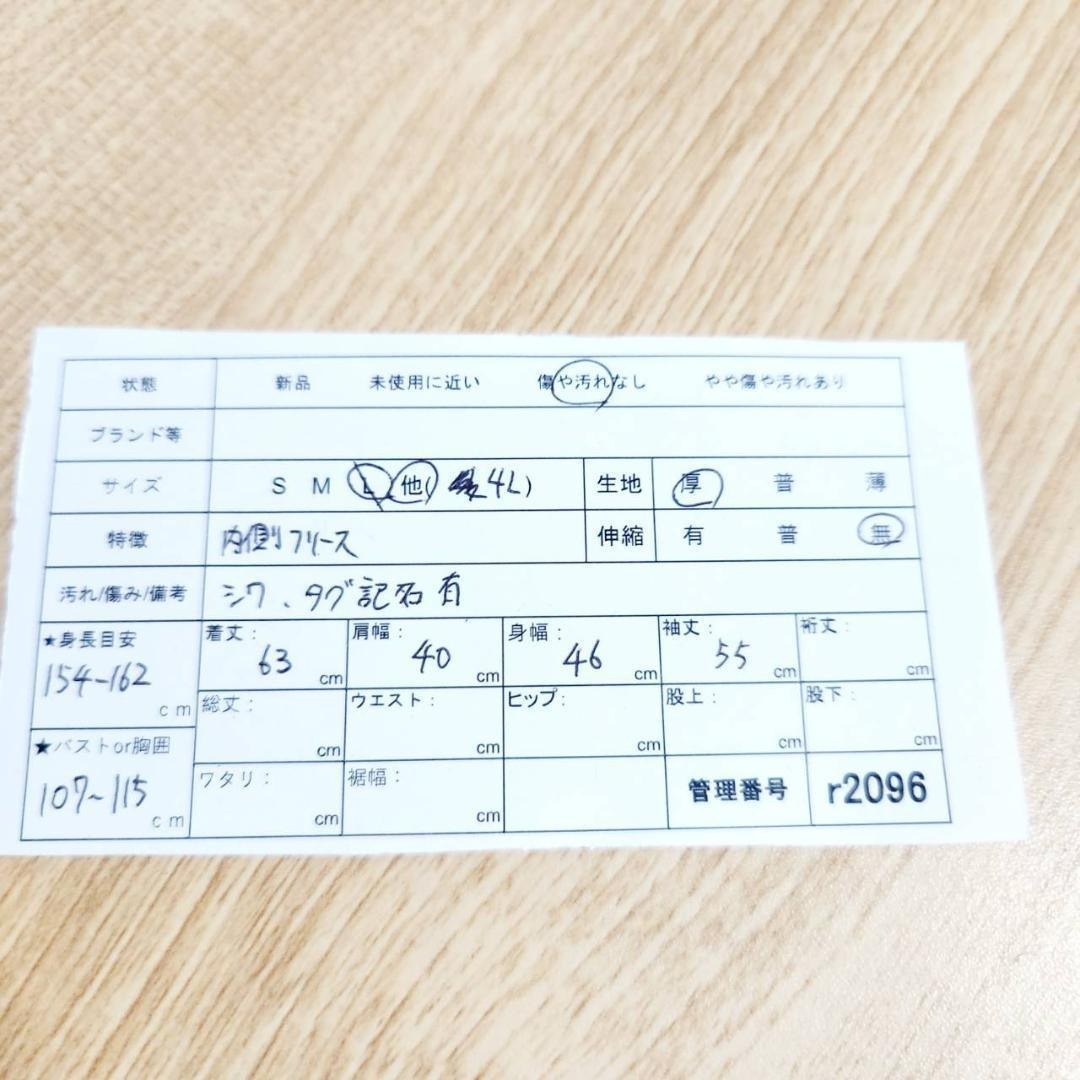 状態 新品 未使用に近い 傷や汚れなし やや傷や汚れあり
ブランド等
サイズ S M L 他( 4L) 生地 厚 普 薄
特徴 内側フリース 伸縮 有 普 無
汚れ/傷み/備考 シワ、タグ記名有
★身長目安 着丈: 肩幅: 身幅: 袖丈: 裄丈:
154-162 63 40 46 55
cm cm cm cm cm cm
総丈: ウエスト: ヒップ: 股上: 股下:
cm cm cm cm cm
★バストor胸囲 ワタリ: 裾幅: 管理番号 r2096
107~115
cm cm cm